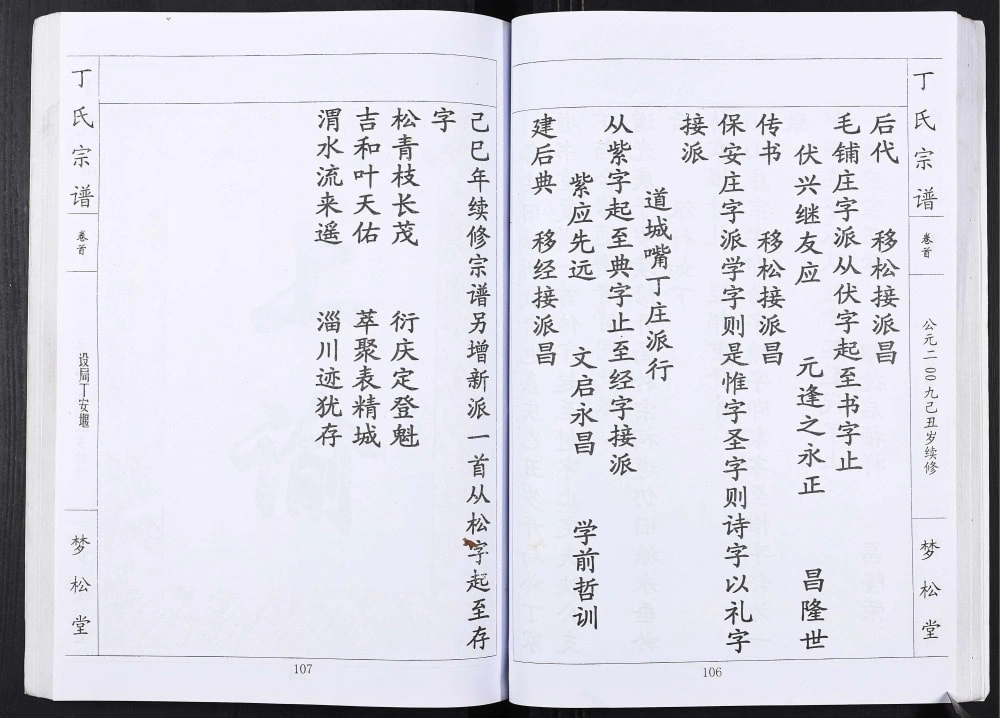 丁氏宗谱
卷首
公元二00九己丑岁续修
梦松堂
后代 移松接派昌
毛铺庄字派从伏字起至书字止
伏兴继友应 元逢之永正 昌隆世
传书 移松接派昌
保安庄字派学字则是惟字圣字则诗字以礼字
接派
道城嘴丁庄派行
从紫字起至典字止至经字接派
紫应先远 文启永昌 学前哲训
建后典 移经接派昌
106
己巳年续修宗谱另增新派一首从松字起至存
字
松青枝长茂 衍庆定登魁
吉和叶天佑 萃聚表精城
渭水流来遥 淄川迹犹存
丁氏宗谱
卷首
设局丁安堰
梦松堂
107